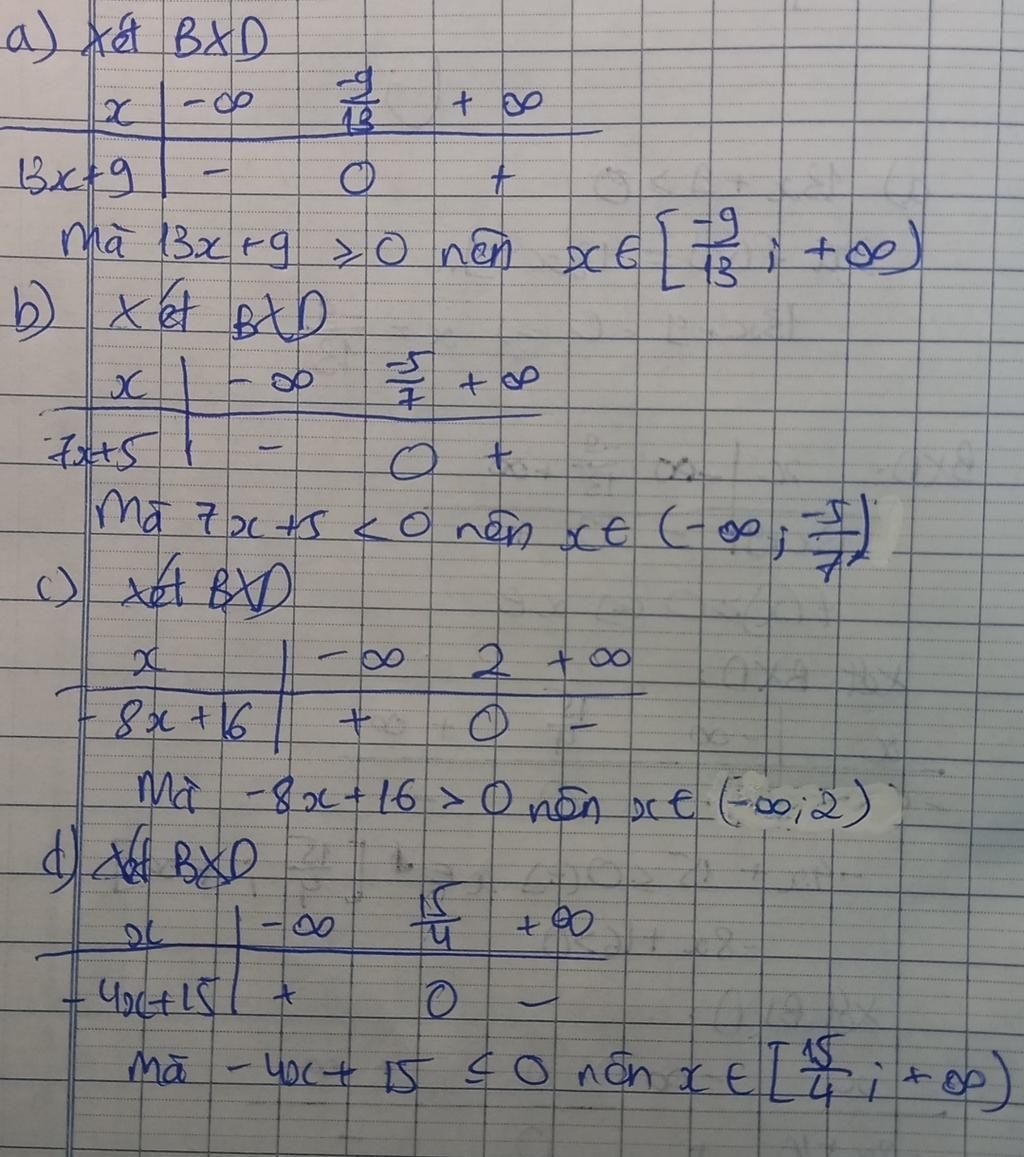 a) Xét BXD
x | -∞ -9/13 + ∞
13x+9 | - 0 +
Mà 13x+9 ≥ 0 nên x∈ [-9/13 ; +∞)
b) Xét BXD
x | -∞ -5/7 +∞
7x+5 | - 0 +
Mà 7x+5 < 0 nên x∈ (-∞ ; -5/7)
c) Xét BXD
x | -∞ 2 +∞
-8x+16 | + 0 -
Mà -8x+16 > 0 nên x∈ (-∞;2)
d) Xét BXD
x | -∞ 15/4 +∞
-4x+15 | + 0 -
Mà -4x+15 ≤ 0 nên x∈ [15/4 ; +∞)